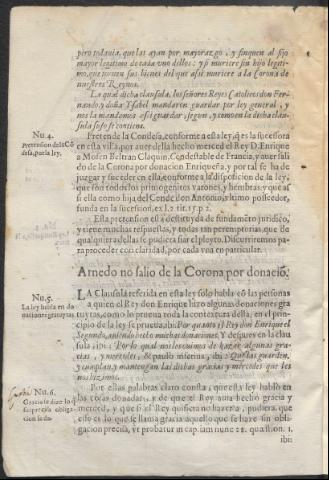 pero todauia, que las ayan por mayorazgo, y finquen al fijo
mayor legitimo de cada vno dellos: y si muriere sin hijo legiti-
mo, que tornen sus bienes del que assi muriere a la Corona de
nuestros Reynos.
La qual dicha clausula, los señores Reyes Catolicos don Fer-
nando, y doña Ysabel mandaron guardar por ley general, y
nos la mandamos assi guardar, segun, y como en la dicha clau-
sula suso se contiene.
Nu. 4.
Pretension del Cō
desa, por la ley.
Pretende la Condesa, conforme a esta ley, q̃ es la sucesora
en esta villa, por auer della hecho merced el Rey D. Enrique
a Mosen Beltran Claquin, Condestable de Francia, y auer sali
do de la Corona por donacion Enriqueña, y por tal se ha de
juzgar y suceder en ella, conforme a la disposicion de la ley,
que son todos los primogenitos varones, y hembras: y que assi
ella como hija del Conde don Antonio, vltimo posseedor,
funda en la sucesion, ex l. 2. tit. 15. p. 2.
Esta pretension està destituyda de fundamēto juridico, y
tiene muchas respuestas, y todas tan peremptorias, que de
qual quiera dellas se pudiera fiar el pleyto. Discurriremos pa-
ra proceder con claridad, por cada vna en particular.
Arnedo no salio de la Corona por donaciō.
Nu. 5.
La ley habla en do
nationes gratuytas
LA Clausula referida en esta ley solo habla cō las personas
a quien el Rey don Enrique hizo algunas donaciones gra
tuytas, como lo prueua toda la contextura della, en el prin-
cipio de la ley se prueua, ibi: Por quanto el Rey don Enrique el
Segundo, auiendo hecho muchas donaciones. Y despues en la clau
sula, ibi: Por lo qual nos le ouimos de hazer algunas gra-
cias, y mercedes, & paulo inferius, ibi: Que las guarden,
y cumplan, y mantengan las dichas gracias y mercedes que les
nos hizimos.
Nu. 6.
Gracia se dize lo q̃
se
Por estas palabras claro consta, que esta ley hablò en
las cosas donadas, y de que el Rey auia hecho gracia y
merced, y que si el Rey quisiera no hazerla, pudiera, que
esso es lo que se llama gracia aquello que se haze sin obli-
gacion precisa, vt probatur in cap. iam nunc 28. quæstion. 1.
ibi: